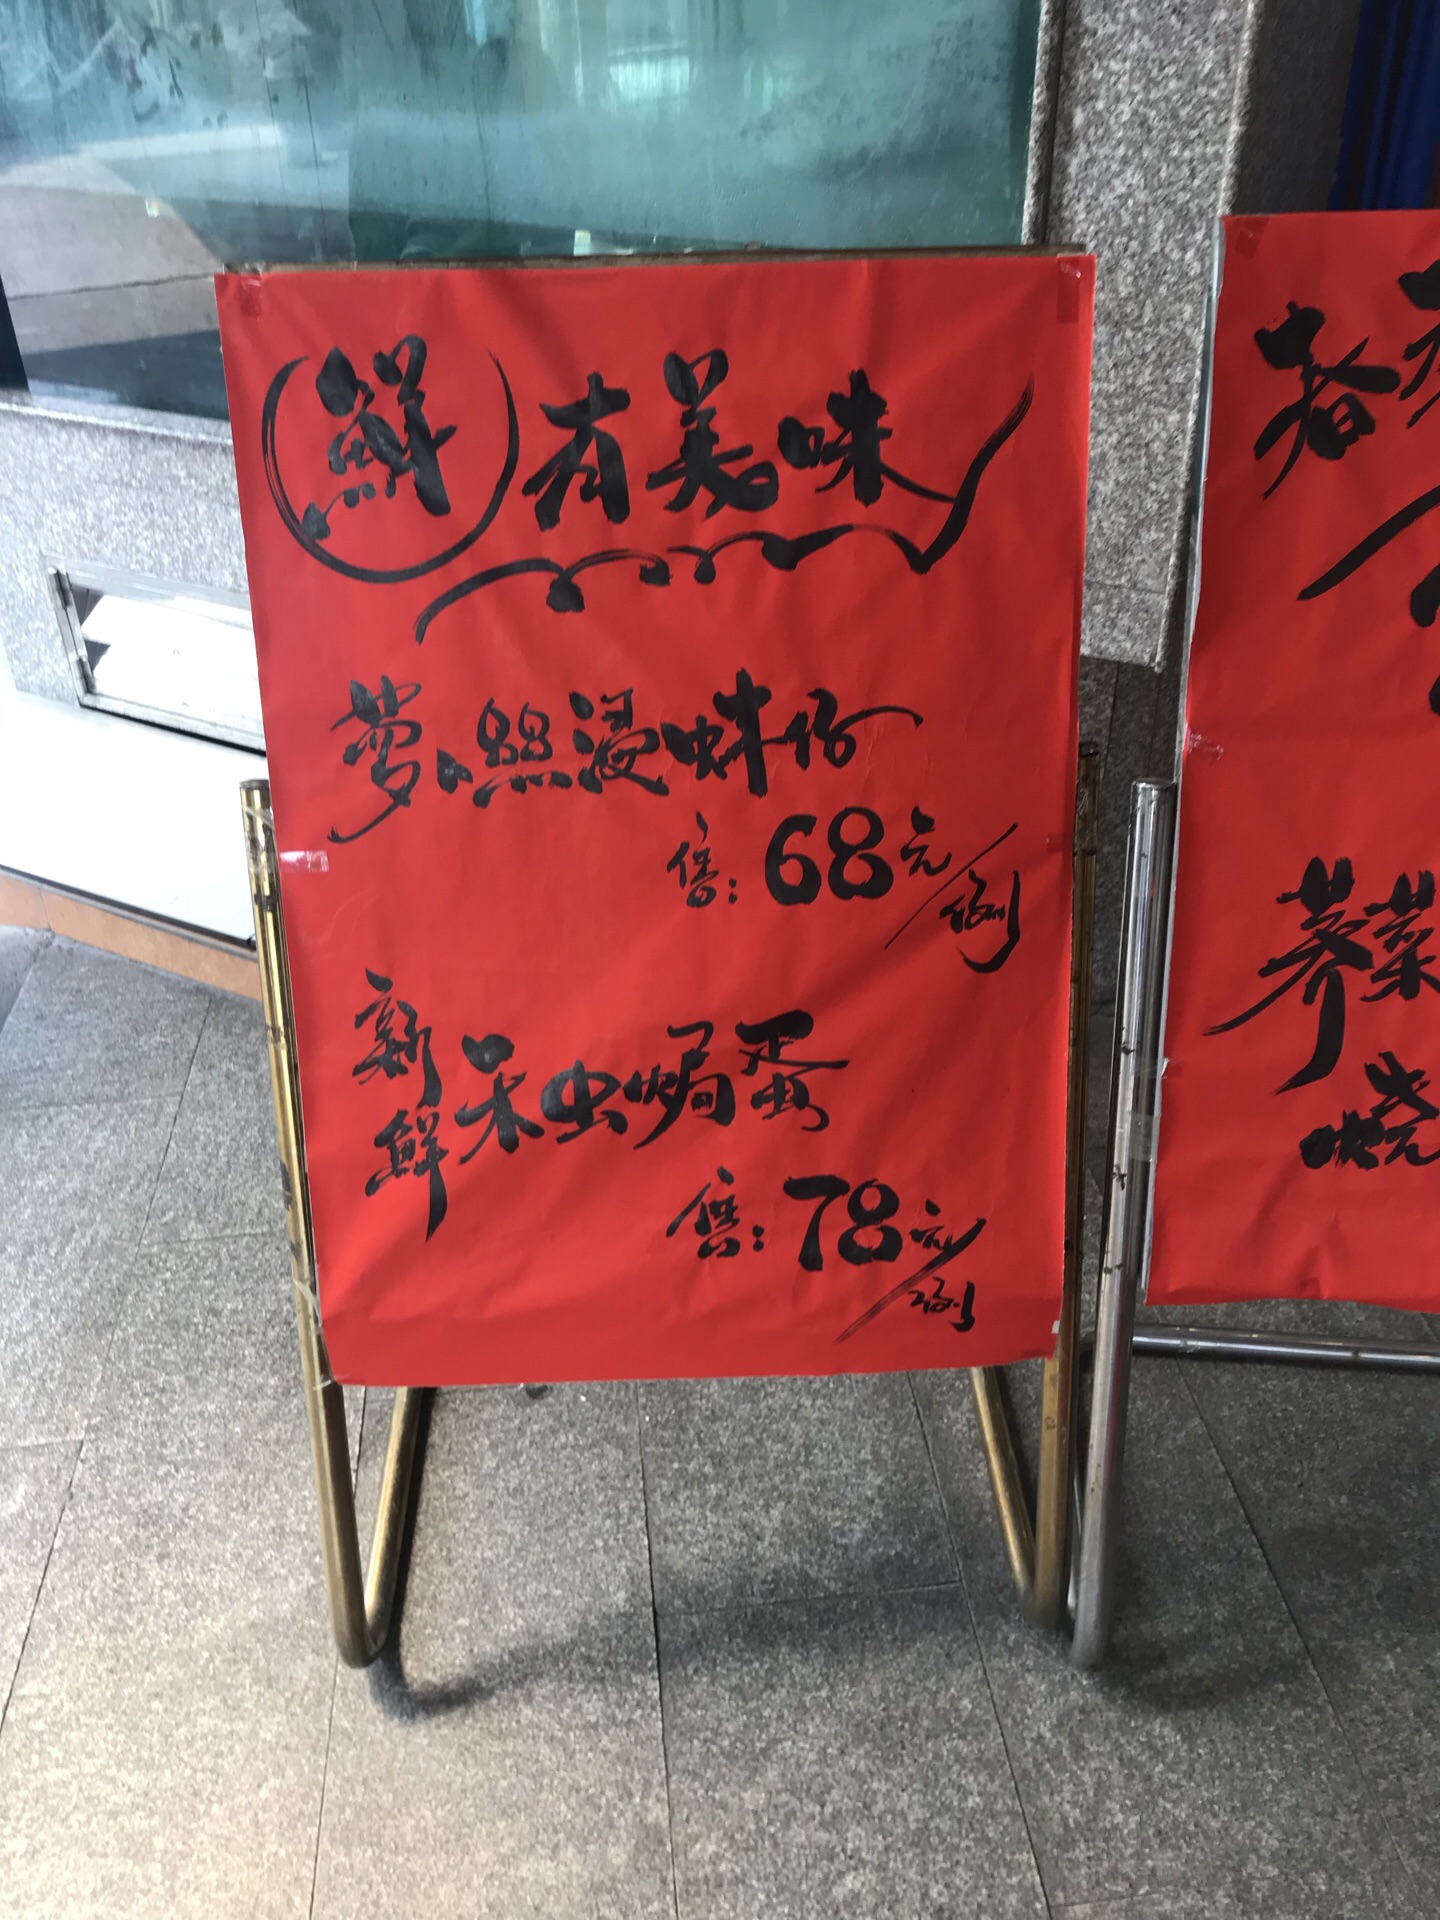 鮮有美味
萝卜絲浸蚌仔
售:68元/例
新鮮禾虫焗蛋
售:78元/例
春
荠菜
燒